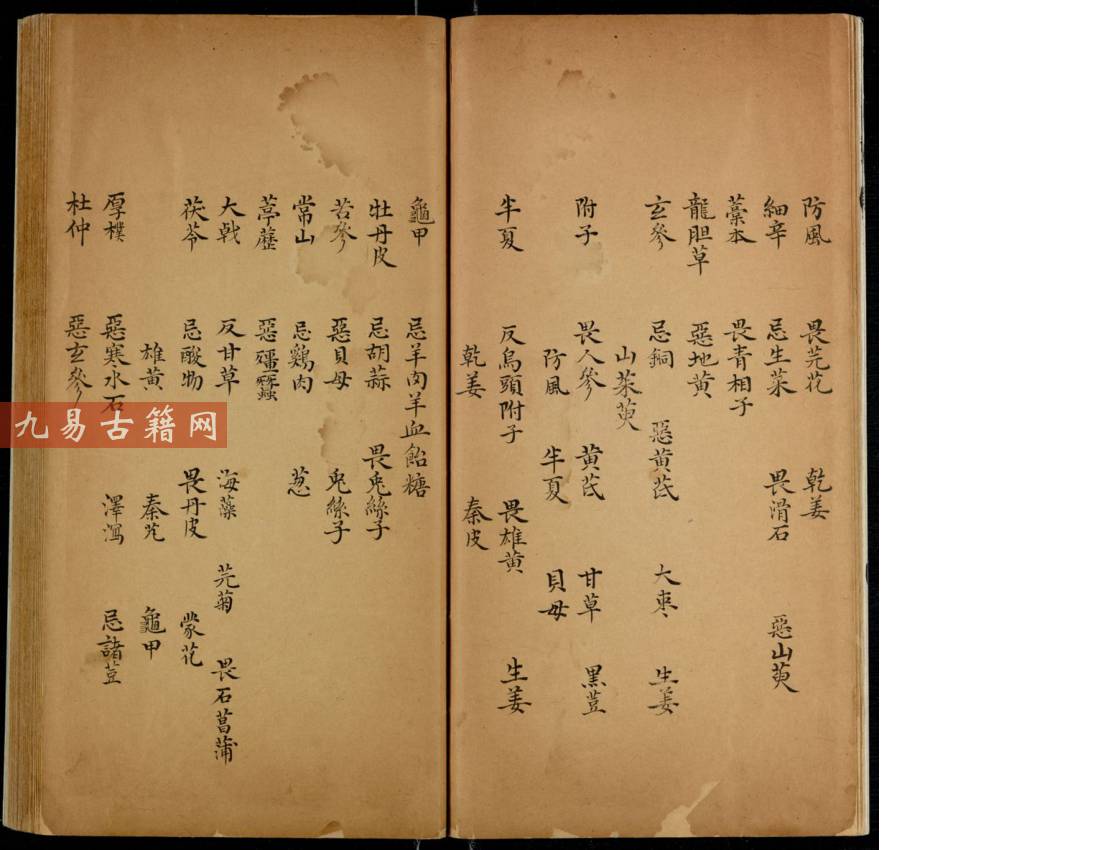 防風 畏芫花 乾姜
細辛 忌生菜 畏滑石 惡山萸
藁本 畏青相子
龍胆草 惡地黄
玄參 忌銅 惡黄茋 大枣 生姜
山茱萸
附子 畏人參 黄茋 甘草 黑荳
防風 半夏 貝母
半夏 反烏頭附子 畏雄黄 生姜
乾姜 秦皮
龜甲 忌羊肉羊血飴糖
牡丹皮 忌胡蒜 畏兎絲子
苦參 惡貝母 兎絲子
常山 忌鷄肉 葱
葶藶 惡殭蠶
大戟 反甘草 海藻 芫菊 畏石菖蒲
茯苓 忌酸物 畏丹皮 蒙花
雄黄 秦艽 龜甲
厚樸 惡寒水石 澤瀉 忌諸荳
杜仲 惡玄參
九易古籍网